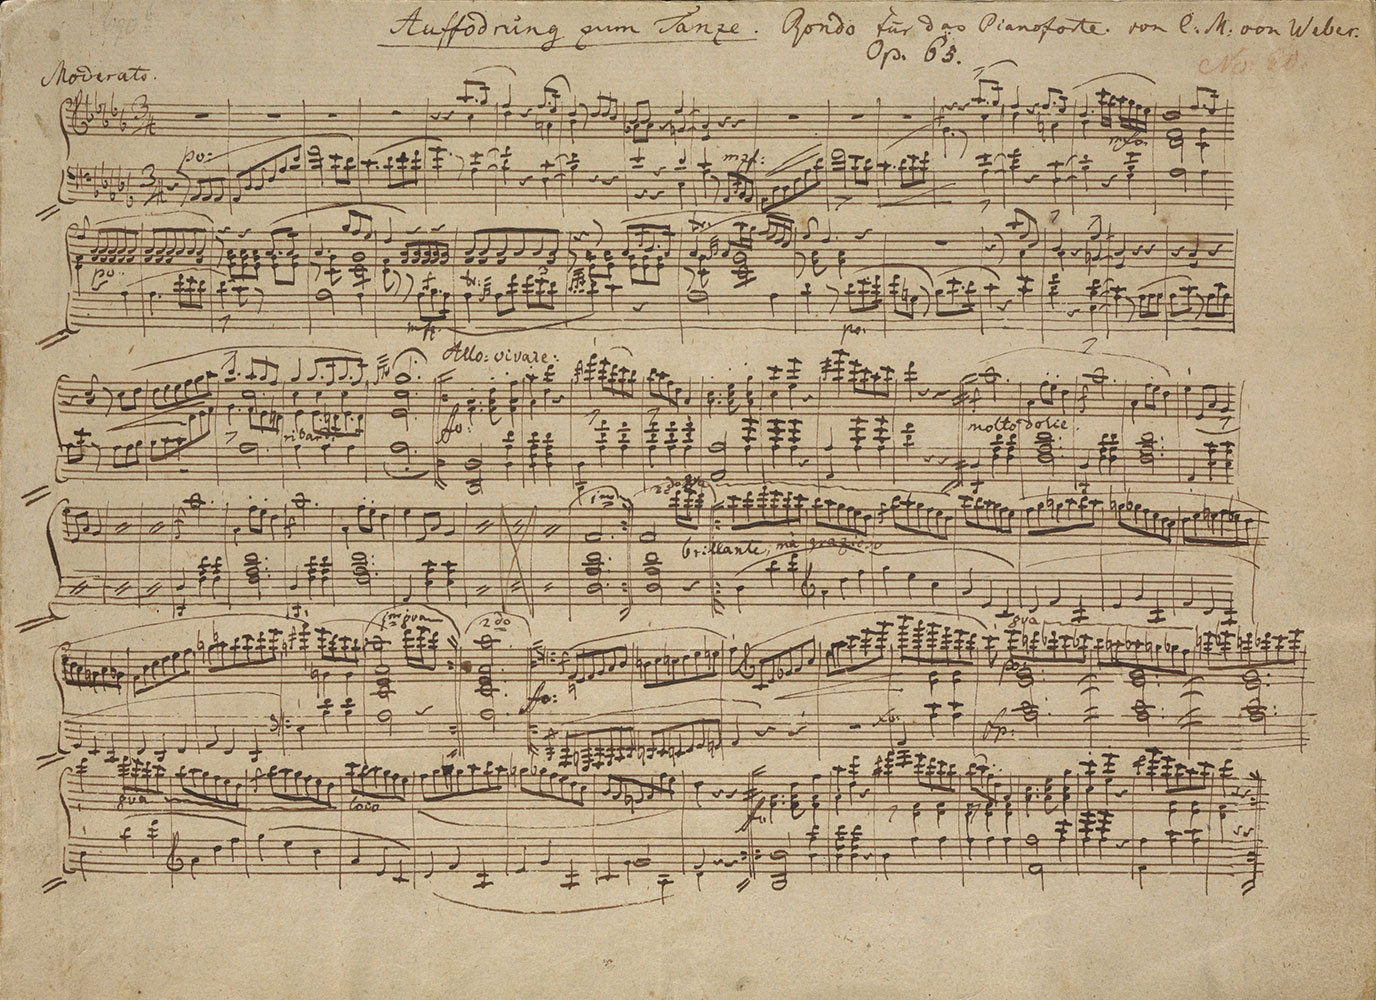 Auffodrung zum Tanze. Rondo für das Pianoforte von C. M. von Weber.
Op. 65.
Moderato.
po:
mzf:
po:
mf:
po.
Allo: vivace:
fo:
molto dolce.
1mo
2do 8va
brillante, mà grazioso
1mo 8va
2do
8va
fo:
8va
loco
fo: